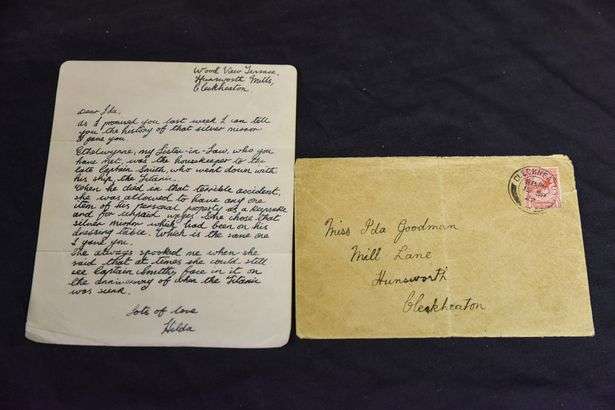 Wood View Terrace,
Hunsworth Mills,
Cleckheaton
dear Ida.
As I promised you last week I can tell
you the history of that silver mirror
I gave you.
Ethelwynne, my Sister-in-Law, who you
have met, was the housekeeper to the
late Captain Smith, who went down with
his ship, the Titanic.
When he died in that terrible accident,
she was allowed to have any one
item of his personal property as a keepsake
and for unpaid wages. She chose that
silver mirror which had been on his
dressing table. Which is the same one
I gave you.
She always spooked me when she
said that at times she could still
see Captain Smiths, face in it on
the anniversary of when the Titanic
was sunk.
lots of love
Hilda
CLECKHEA
Miss Ida Goodman
Mill Lane
Hunsworth
Cleckheaton